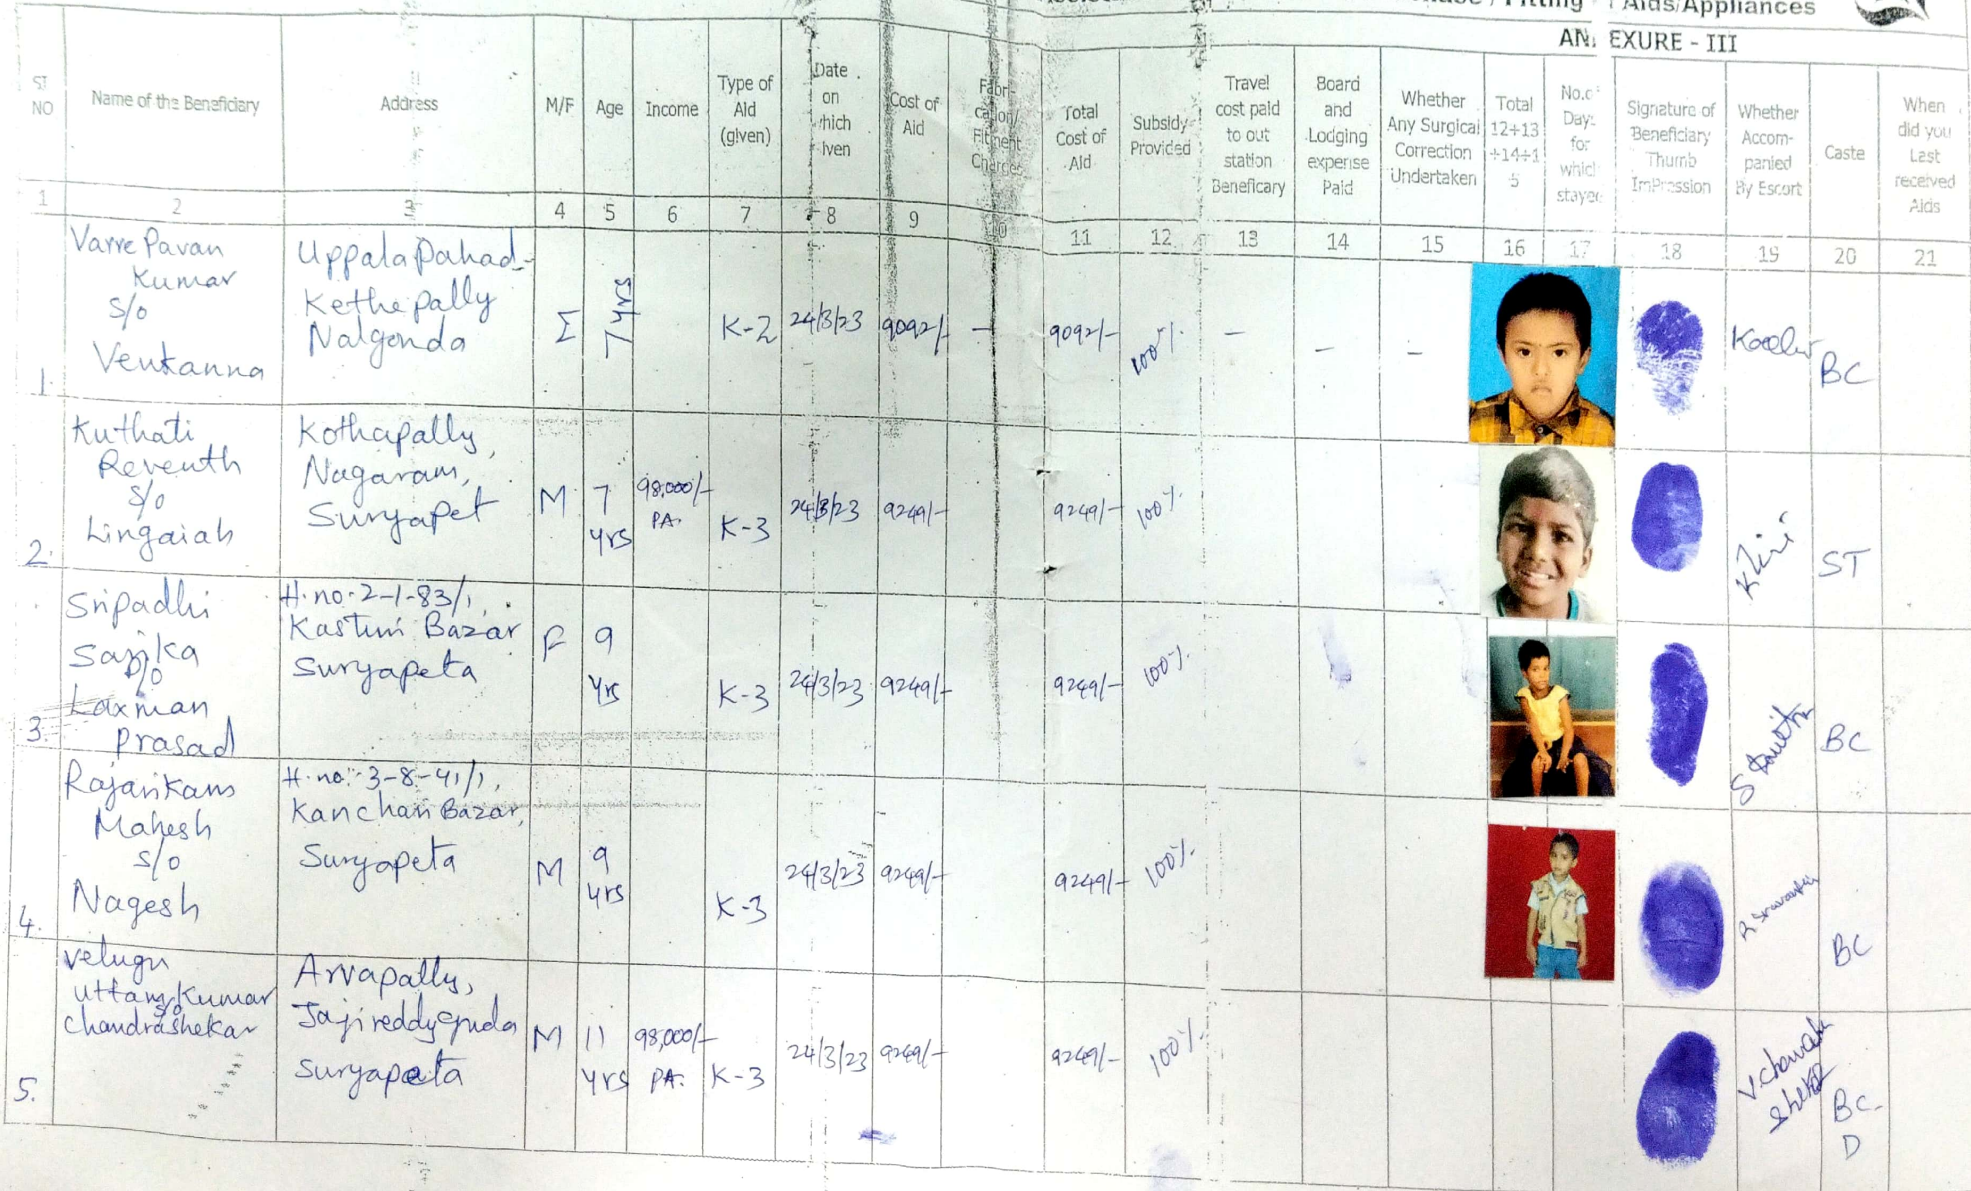 Aids/Appliances
ANEXURE - III
ST NO
Name of the Beneficiary
Address
M/F
Age
Income
Type of Aid (given)
Date on which iven
Cost of Aid
Fabrication/ Fitment Charges
Total Cost of Aid
Subsidy Provided
Travel cost paid to out station Beneficary
Board and Lodging expense Paid
Whether Any Surgical Correction Undertaken
Total 12+13 +14+1 5
No.of Days for which stayed
Signature of Beneficiary Thumb ImPression
Whether Accompanied By Escort
Caste
When did you Last received Aids
1 2 3 4 5 6 7 8 9 10 11 12 13 14 15 16 17 18 19 20 21
1. Varre Pavan Kumar S/o Venkanna
Uppalapahad- Kethepally Nalgonda
M 7 yrs K-2 24/3/23 9092/- - 9092/- 100% - - - BC
2. Kuthati Reventh S/o Lingaiah
Kothapally, Nagaram, Suryapet
M 7 yrs 98,000/- PA. K-3 24/3/23 9249/- 9249/- 100% ST
3. Sripadhi Sajika D/o Laxman Prasad
H.no.2-1-83/1, Kasturi Bazar Suryapeta
F 9 yrs K-3 24/3/23 9249/- 9249/- 100% BC
4. Mahesh S/o Nagesh
H.no:-3-8-41/1, Kanchari Bazar, Suryapeta
M 9 yrs K-3 24/3/23 9249/- 9249/- 100% R Sravanthi BC
5. Velugu Uttam Kumar S/o Chandrashekar
Arvapally, Jajireddyguda Suryapeta
M 11 yrs 98,000/- PA. K-3 24/3/23 9249/- 9249/- 100% V. Chandra Shekar BC-D